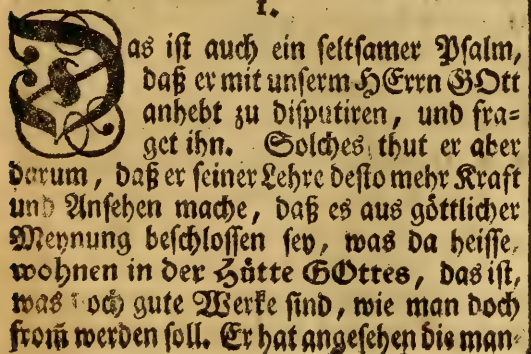 1.
Das ist auch ein seltsamer Psalm,
daß er mit unserm HErrn GOtt
anhebt zu disputiren, und fra=
get ihn. Solches thut er aber
darum, daß er seiner Lehre desto mehr Kraft
und Ansehen mache, daß es aus göttlicher
Meynung beschlossen sey, was da heisse,
wohnen in der Hütte GOttes, das ist,
was doch gute Werke sind, wie man doch
from̃ werden soll. Er hat angesehen die man=